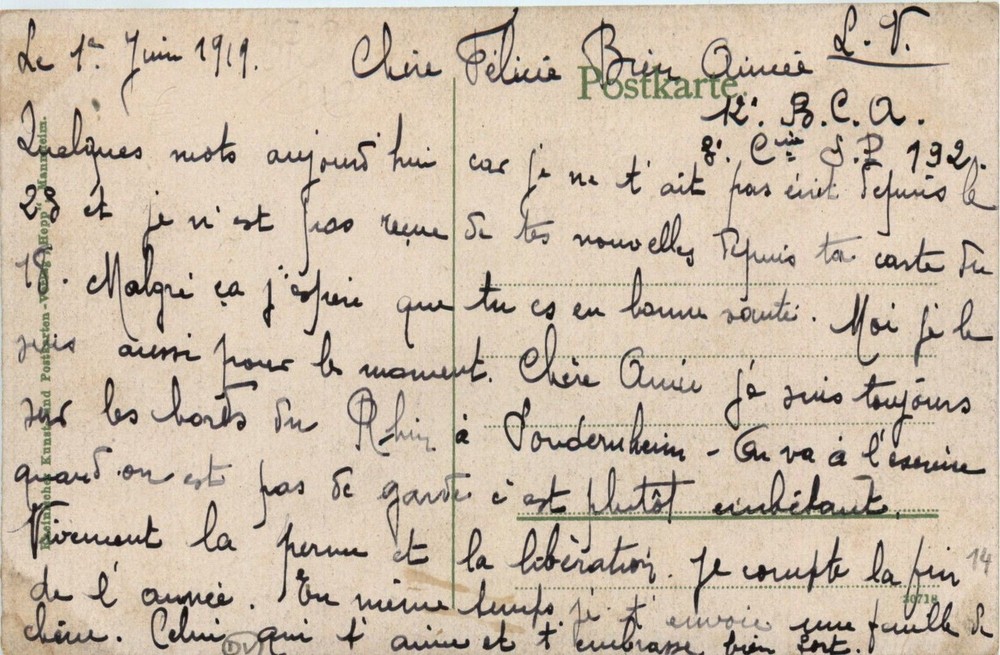 Le 1er Juin 1919. Chère Félicie Bien Aimée L. V.
Postkarte.
12e. B. C. A.
8e. Cnie S.P 192.
Quelques mots aujourd'hui car je ne t'ait pas écrit depuis le
28 et je n'est pas reçue de tes nouvelles depuis ta carte du
18. Malgré ça j'espère que tu es en bonne santé. Moi je le
suis aussi pour le moment. Chère Amie je suis toujours
sur les bords du Rhin à - On va à l'exercice
quand on est pas de garde c'est plutôt embêtant.
Vivement la perme et la libération. Je compte la fin
de l'année. En même temps je t'envoie une feuille de
chêne. Celui qui t'aime et t'embrasse bien fort.
Rheinischer Kunst und Postkarten-Verlag "Hepp" Mannheim.
14
30718